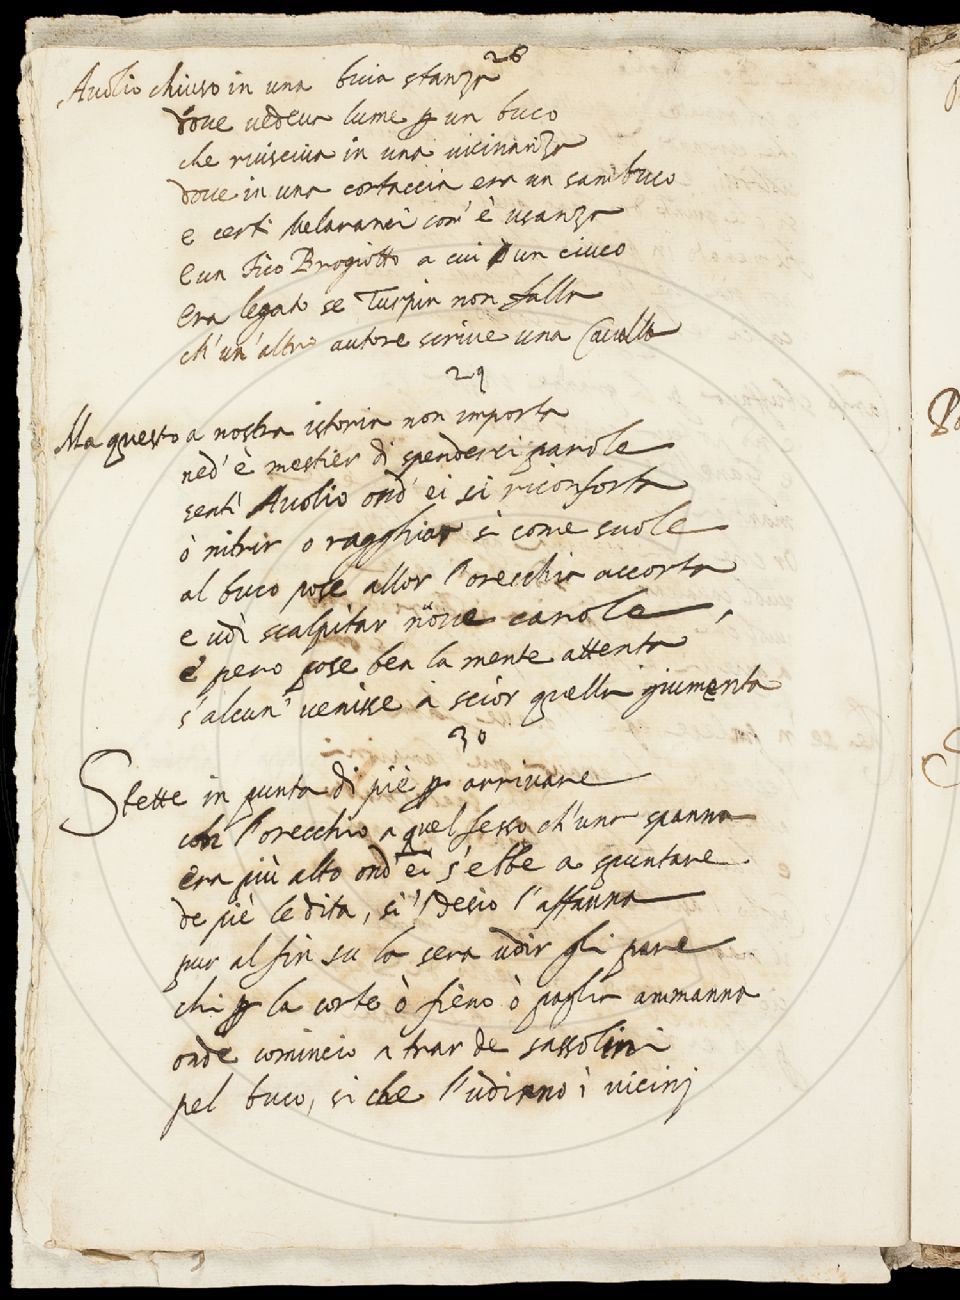 28
Auolio chiuso in una buia stanza
doue uedeua lume p un buco
che riusciua in una uicinanza
doue in una cortaccia era un sambuco
e certi melaranci com' è usanza
e un Fico Brogiotto a cui un ciuco
era legato se Turpin non falla
ch'un'altro autore scriue una Caualla
29
Ma questo a nostra istoria non importa
ned' è mestier di spenderci parole
sentì Auolio ond' ei si riconforta
ò nitrir o ragghiar sì come suole
al buco pose allor l'orecchia accorta
e udì scalpitar nòue carole,
e però pose ben la mente attenta
s'alcun' uenisse à scior quella giumenta
30
Stette in punta di piè p arriuare
con l'orecchio a quel fesso ch'una spanna
era più alto ond' ei s'ebbe a spuntare
de piè le dita, sì 'l desio l'affanna
pur al fin su la sera udir gli pare
chi p la corte ò fièno ò paglia ammanna
onde cominciò a trar de sassolini
pel buco, si che l'udirno i uicinj